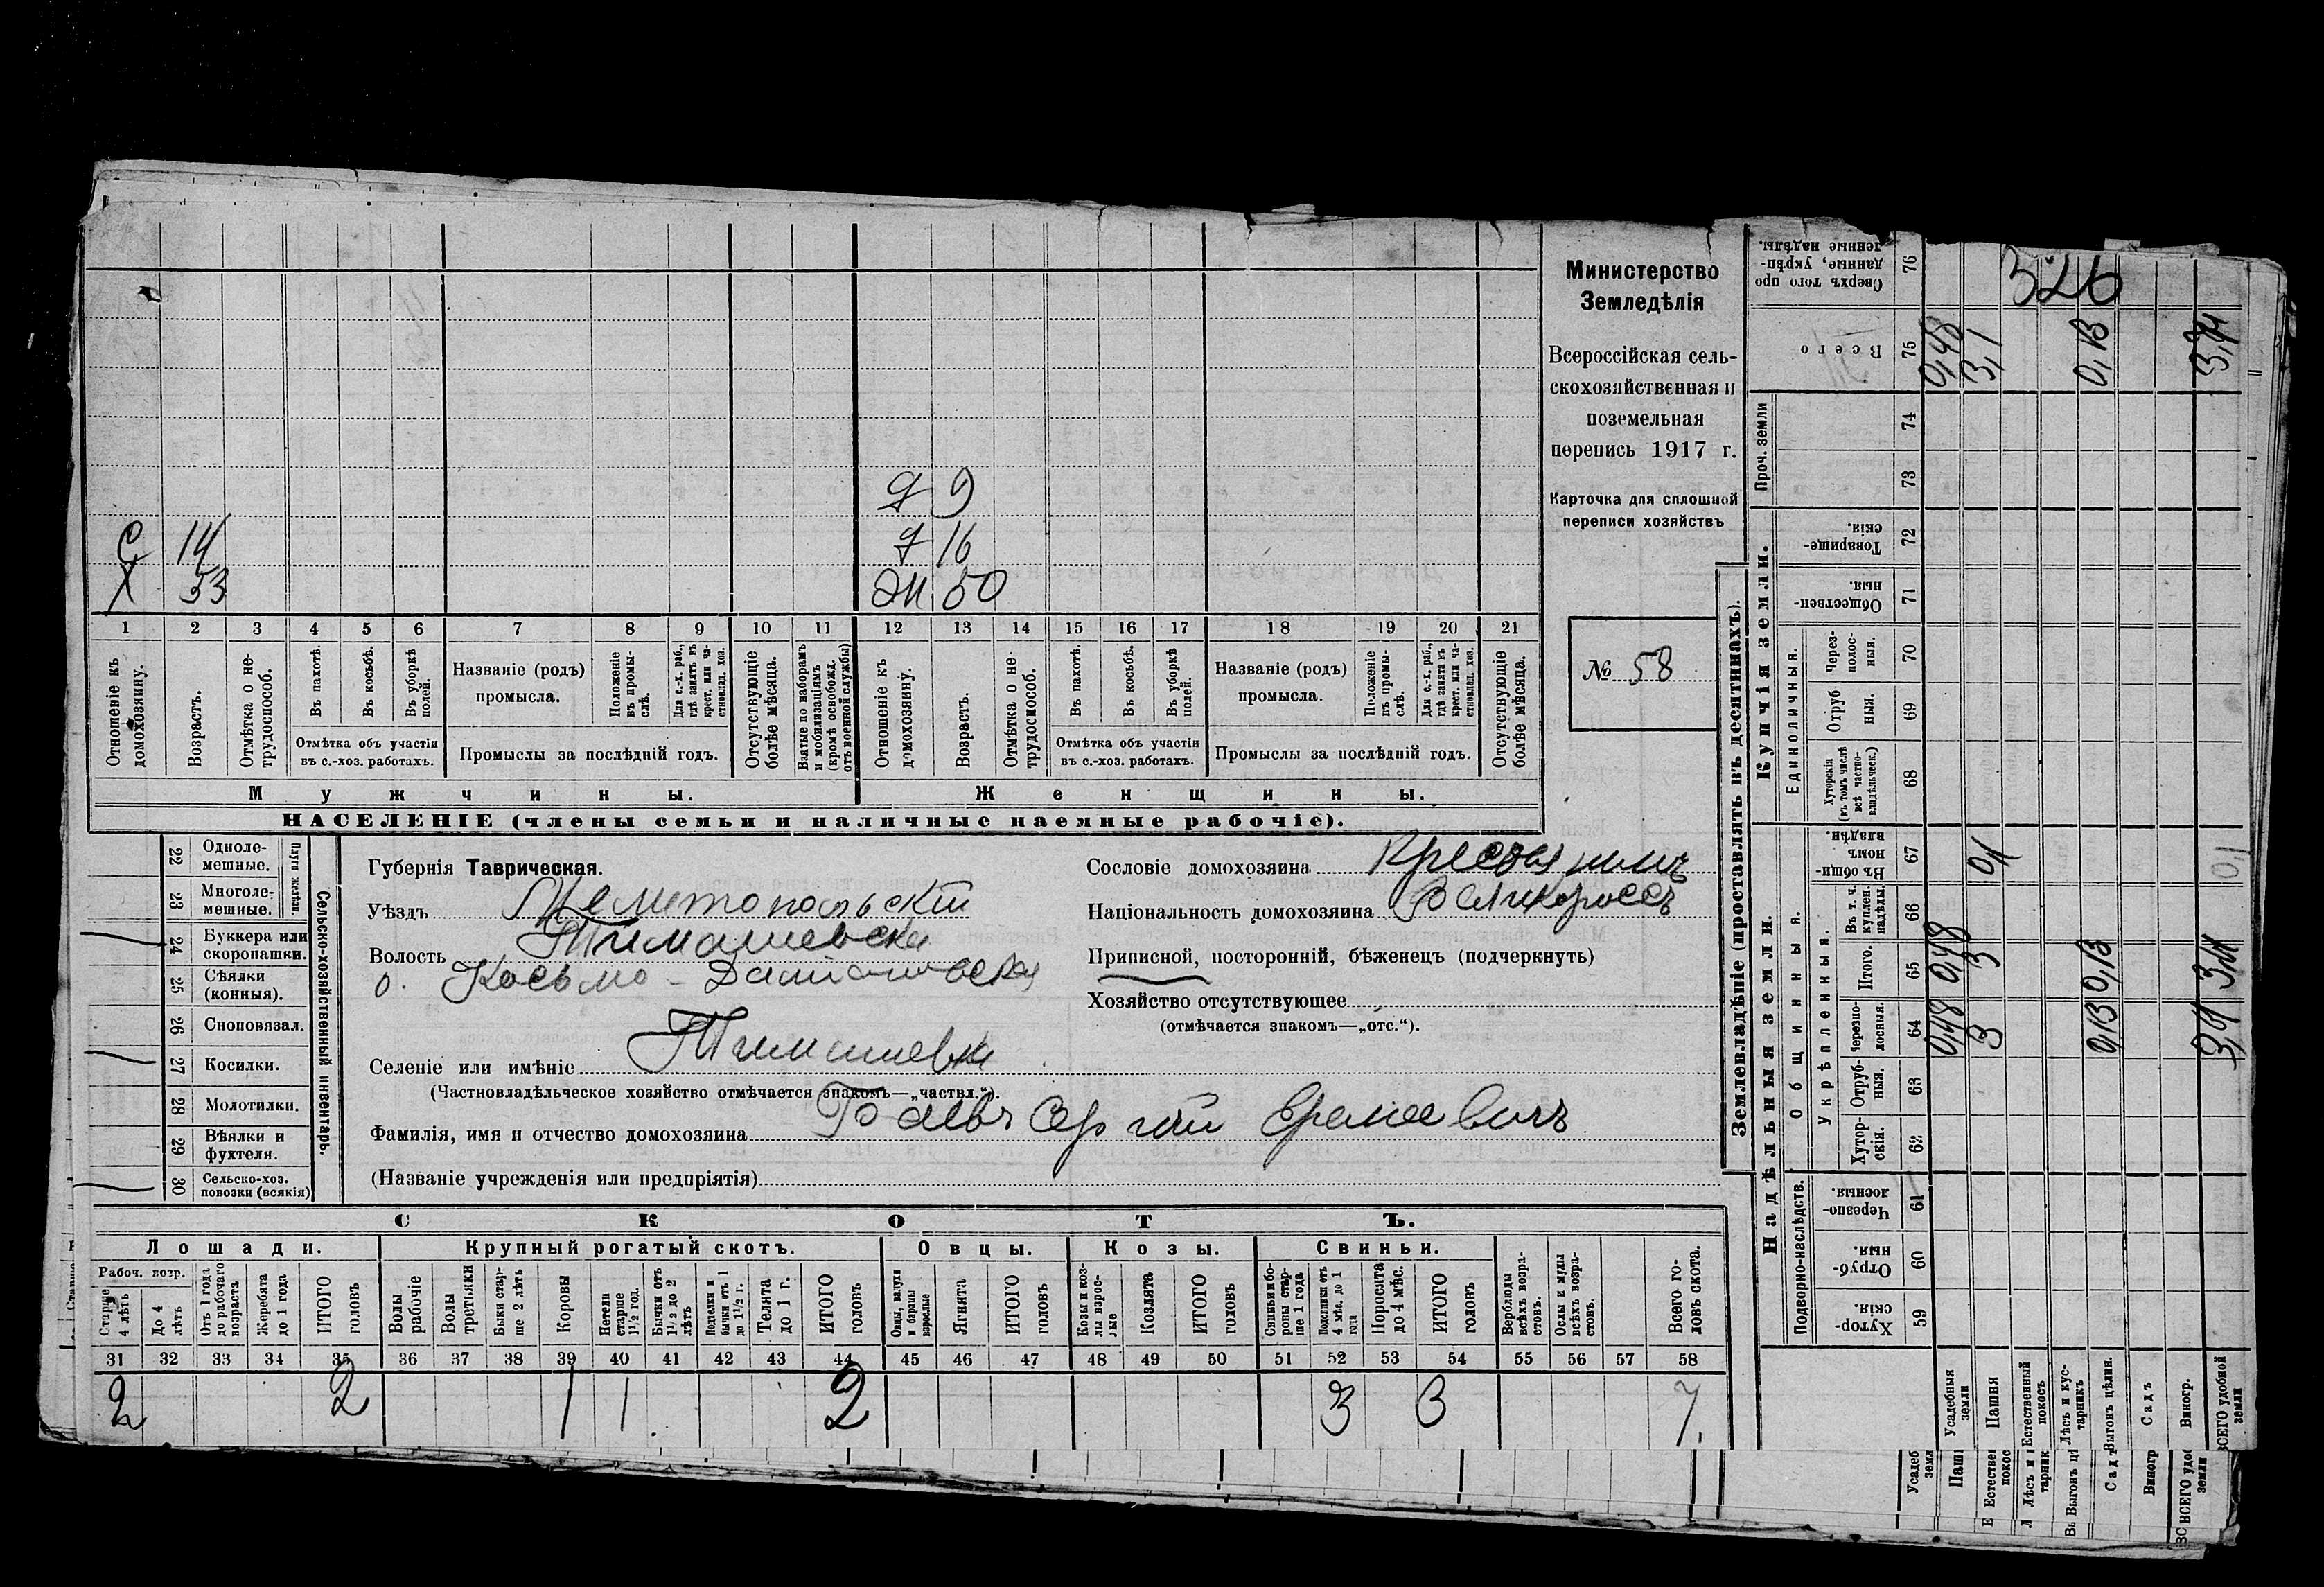 Министерство
Земледѣлія
Всероссійская сель-
скохозяйственная и
поземельная
перепись 1917 г.
Карточка для сплошной
переписи хозяйствъ
№ 58
326
Д 9
С 14
Д 16
Х 53
Ж 50
1 2 3 4 5 6 7 8 9 10 11 12 13 14 15 16 17 18 19 20 21
Отношеніе къ домохозяину.
Возрастъ.
Отмѣтка о не-трудоспособ.
Въ пахотѣ.
Въ косьбѣ.
Въ уборкѣ полей.
Отмѣтка объ участіи
въ с.-хоз. работахъ.
Названіе (родъ)
промысла.
Положеніе въ промы-слѣ.
Для с.-х. раб., гдѣ занятъ въ крест. или ча-стновлад. хоз.
Промыслы за послѣдній годъ.
Отсутствующіе болѣе мѣсяца.
Взятые по наборамъ и мобилизаціямъ (кромѣ освобожд. отъ военной службы)
Отношеніе къ домохозяину.
Возрастъ.
Отмѣтка о не-трудоспособ.
Въ пахотѣ.
Въ косьбѣ.
Въ уборкѣ полей.
Отмѣтка объ участіи
въ с.-хоз. работахъ.
Названіе (родъ)
промысла.
Положеніе въ промы-слѣ.
Для с.-х. раб., гдѣ занята въ крест. или ча-стновлад. хоз.
Промыслы за послѣдній годъ.
Отсутствующіе болѣе мѣсяца.
Мужчины.
Женщины.
НАСЕЛЕНІЕ (члены семьи и наличные наемные рабочіе).
Сельско-хозяйственный инвентарь.
Плуги желѣзн.
22 Одноле-мешные.
23 Многоле-мешные.
24 Буккера или скоропашки.
25 Сѣялки (конныя).
26 Сноповязал.
27 Косилки.
28 Молотилки.
29 Вѣялки и фухтеля.
30 Сельско-хоз. повозки (всякія)
Губернія Таврическая.
Уѣздъ Мелитопольскій
Волость Тимашевска
о. Косьмо-Даміановска
Селеніе или имѣніе Тимашевка
(Частновладѣльческое хозяйство отмѣчается знакомъ—„частвл.“).
Фамилія, имя и отчество домохозяина Сергѣй Еремеевичъ
(Названіе учрежденія или предпріятія)
Сословіе домохозяина Крестьянинъ
Національность домохозяина Великороссъ
Приписной, посторонній, бѣженец (подчеркнуть)
Хозяйство отсутствующее
(отмѣчается знакомъ—„отс.“).
СКОТЪ.
Лошади. Крупный рогатый скотъ. Овцы. Козы. Свиньи.
Рабоч. возр.
Старше 4 лѣтъ
До 4 лѣтъ
Отъ 1 года до рабочаго возраста
Жеребята до 1 года
ИТОГО головъ
Волы рабочіе
Волы третьяки
Быки стар-ше 2 лѣтъ
Коровы
Нетели старше 1½ год.
Бычки отъ 1½ до 2 лѣтъ
Подтелки и бычки отъ 1 до 1½ г.
Телята до 1 г.
ИТОГО головъ
Овцы, валухи и бараны взрослые
Ягнята
ИТОГО головъ
Козы и коз-лы взрос-лые
Козлята
ИТОГО головъ
Свиньи и бо-ровы стар-ше 1 года
Подсвинки отъ 4 мѣс. до 1 года
Поросята до 4 мѣс.
ИТОГО головъ
Верблюды всѣхъ возра-стовъ.
Ослы и мулы всѣхъ возра-стовъ.
Всего го-ловъ скота.
31 32 33 34 35 36 37 38 39 40 41 42 43 44 45 46 47 48 49 50 51 52 53 54 55 56 57 58
2 2 1 1 2 3 3 7
Землевладѣніе (проставлять въ десятинахъ).
Надѣльныя земли.
Подворно-наслѣдств.
59 Хутор-скія.
60 Отруб-ныя.
61 Черезпо-лосныя.
Общинныя.
Укрѣпленныя.
62 Хутор-скія.
63 Отруб-ныя.
64 Черезпо-лосныя.
65 Итого.
66 Въ т. ч. куплен. надѣлы.
67 Въ общи-номъ владѣн.
Купчія земли.
Единоличныя.
68 Хуторскія (въ томъ числѣ всѣ частно-владѣльческ.)
69 Отруб-ныя.
70 Через-полос-ныя.
71 Обществен-ныя.
72 Товарище-скія.
Проч. земли
73
74
75 Всего
76 Сверхъ того про-данные, укрѣп-ленные надѣлы.
Усадебныя земли 0,48 0,48 0,48
Пашня 3 3 0,1 3,1
Естественный покосъ
Лѣсъ и кус-тарникъ
Выгонъ цѣлин. 0,13 0,13 0,13
Садъ
Виногр.
ВСЕГО удобной земли